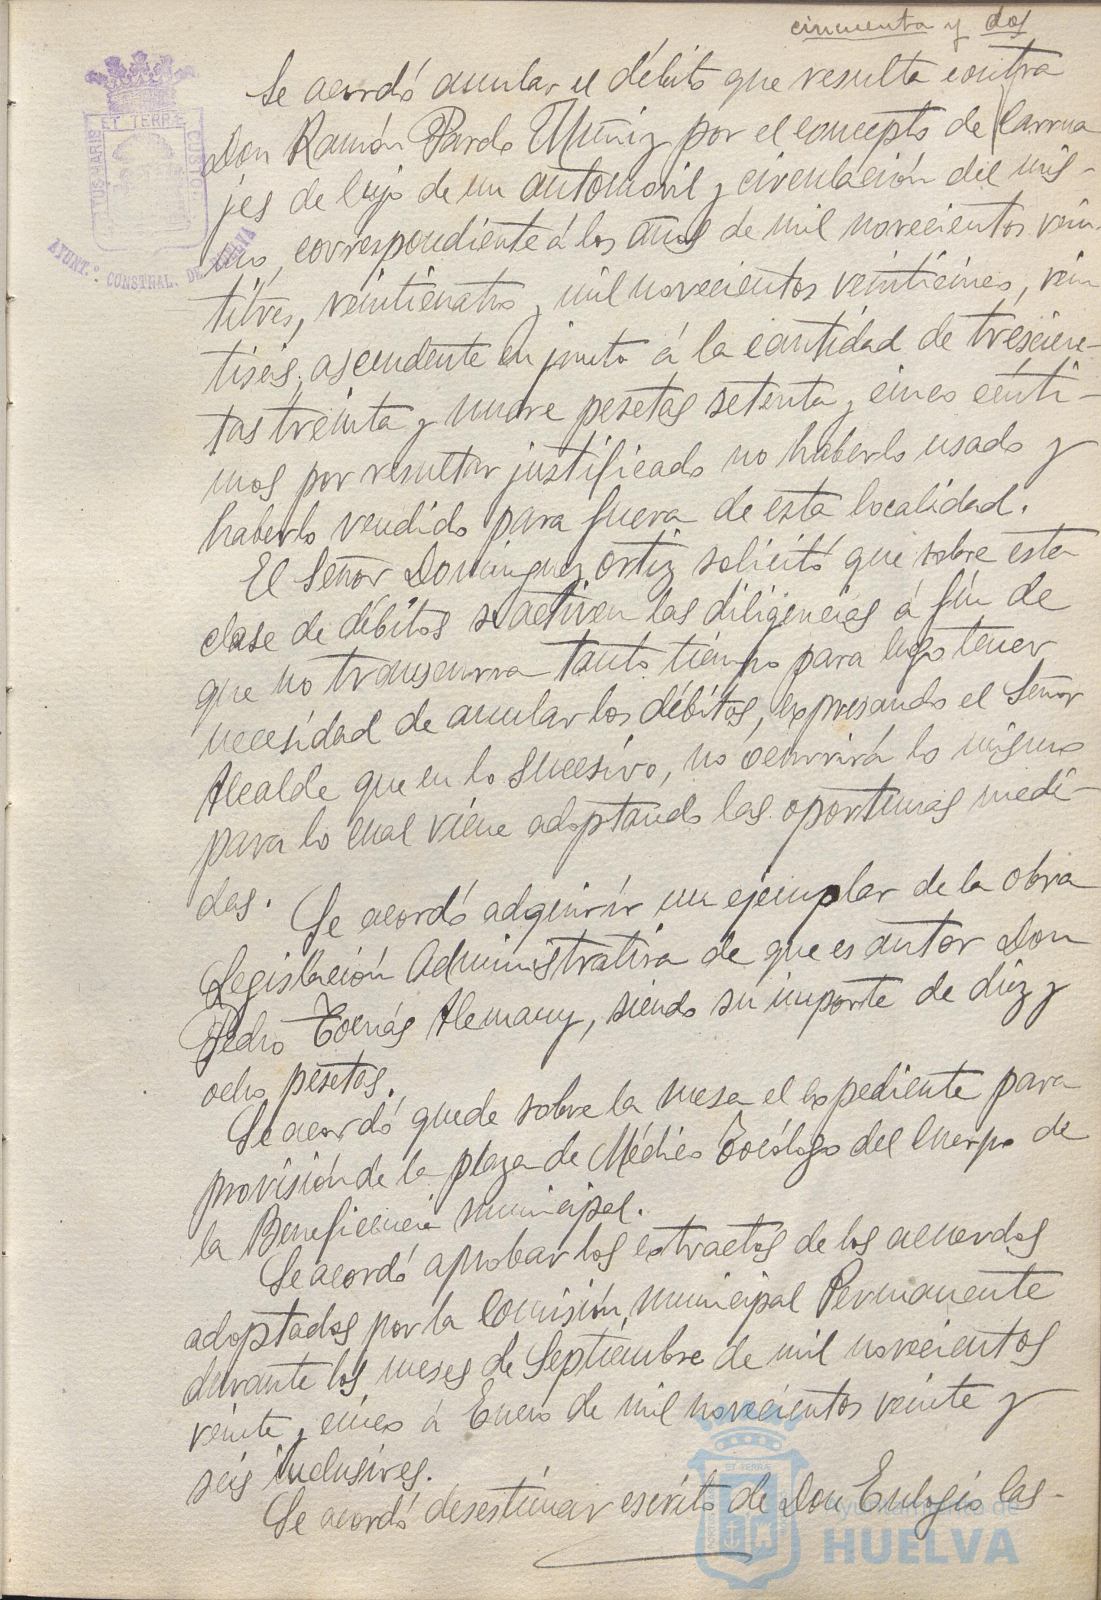 cincuenta y dos
Se acordó anular el débito que resulta contra
Don Ramón Pardo Muñiz por el concepto de Carrua
jes de lujo de un automovil y circulación del mis-
mo, correspondiente á los años de mil novecientos vein-
titres, veinticuatro y mil novecientos veinticinco, vein
tiseis, ascendente en junto á la cantidad de trescien-
tas treinta y nueve pesetas setenta y cinco cénti-
mos por resultar justificado no haberlo usado y
haberlo vendido para fuera de esta localidad.
El Señor Dominguez Ortiz solicitó que sobre esta
clase de débitos se activen las diligencias á fin de
que no transcurra tanto tiempo para luego tener
necesidad de anular los débitos, expresando el Señor
Alcalde que en lo sucesivo, no ocurrirá lo mismo
para lo cual viene adoptando las oportunas medi-
das.
Se acordó adquirir un ejemplar de la obra
Legislación Administrativa de que es autor Don
Pedro Alemany, siendo su importe de diez y
ocho pesetas.
Se acordó quede sobre la mesa el expediente para
provisión de la plaza de Médico Tocólogo del Cuerpo de
la Beneficencia municipal.
Se acordó aprobar los extractos de los acuerdos
adoptados por la Comisión municipal Permanente
durante los meses de Septiembre de mil novecientos
veinte y cinco á Enero de mil novecientos veinte y
seis inclusives.
Se acordó desestimar escrito de Don Eulogio Cas-
ET TERRÆ
PORTUS MARIS
CUSTOD
AYUNT.º CONSTNAL. DE HUELVA
Ayuntamiento de
HUELVA